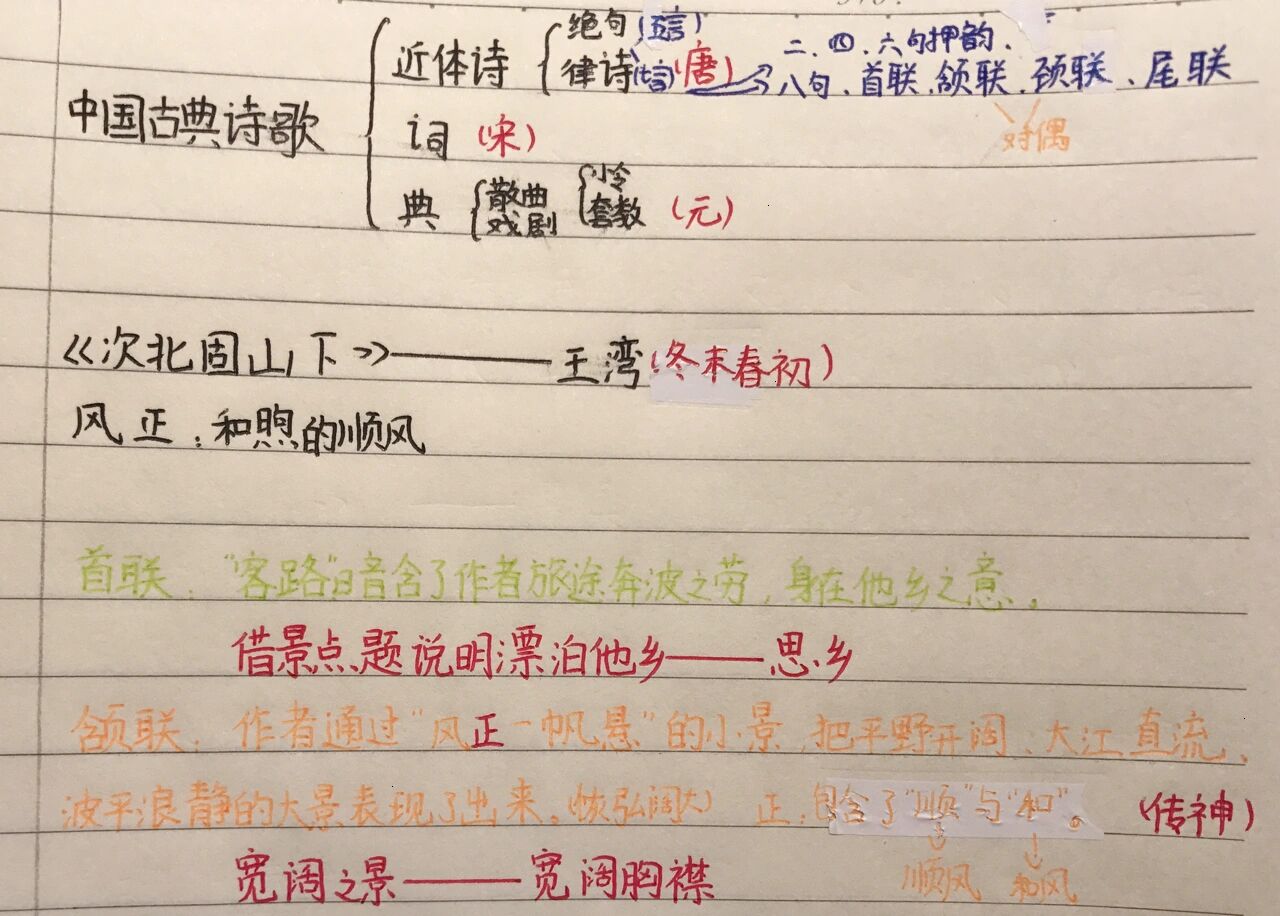 绝句(五言)
近体诗 律诗(七言)(唐) 二、四、六句押韵、
八句、首联、颔联、颈联、尾联
对偶
中国古典诗歌
词(宋)
小令
典 散曲 套数 (元)
戏剧
《次北固山下》——王湾(冬末春初)
风正:和煦的顺风
首联:“客路”暗含了作者旅途奔波之劳,身在他乡之意。
借景点题说明漂泊他乡——思乡
颔联:作者通过“风正一帆悬”的小景,把平野开阔、大江直流、
波平浪静的大景表现了出来。(恢弘阔大) 正:包含了“顺”与“和”。(传神)
顺风 和风
宽阔之景——宽阔胸襟